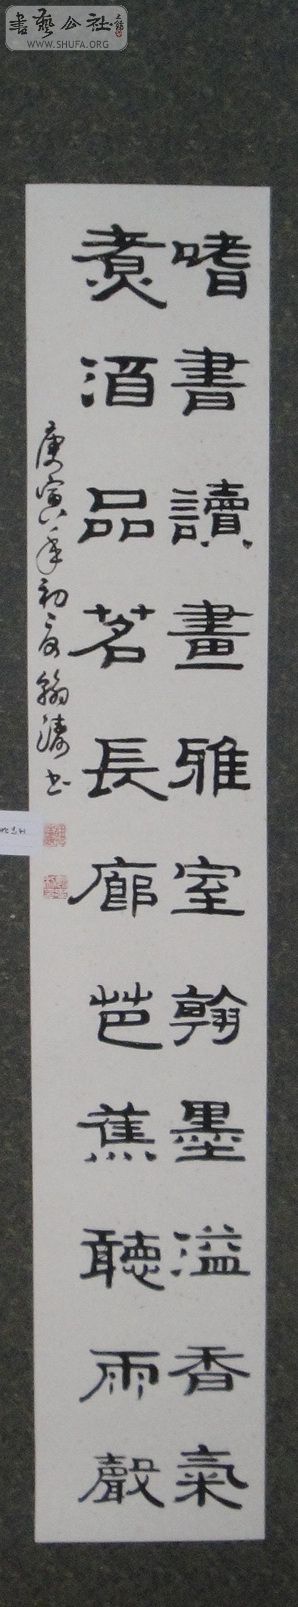 書藝公社
WWW.SHUFA.ORG
嗜書讀畫雅室翰墨溢香氣
煑酒品茗長廊芭蕉聽雨聲
庚寅年初夏翰濤書